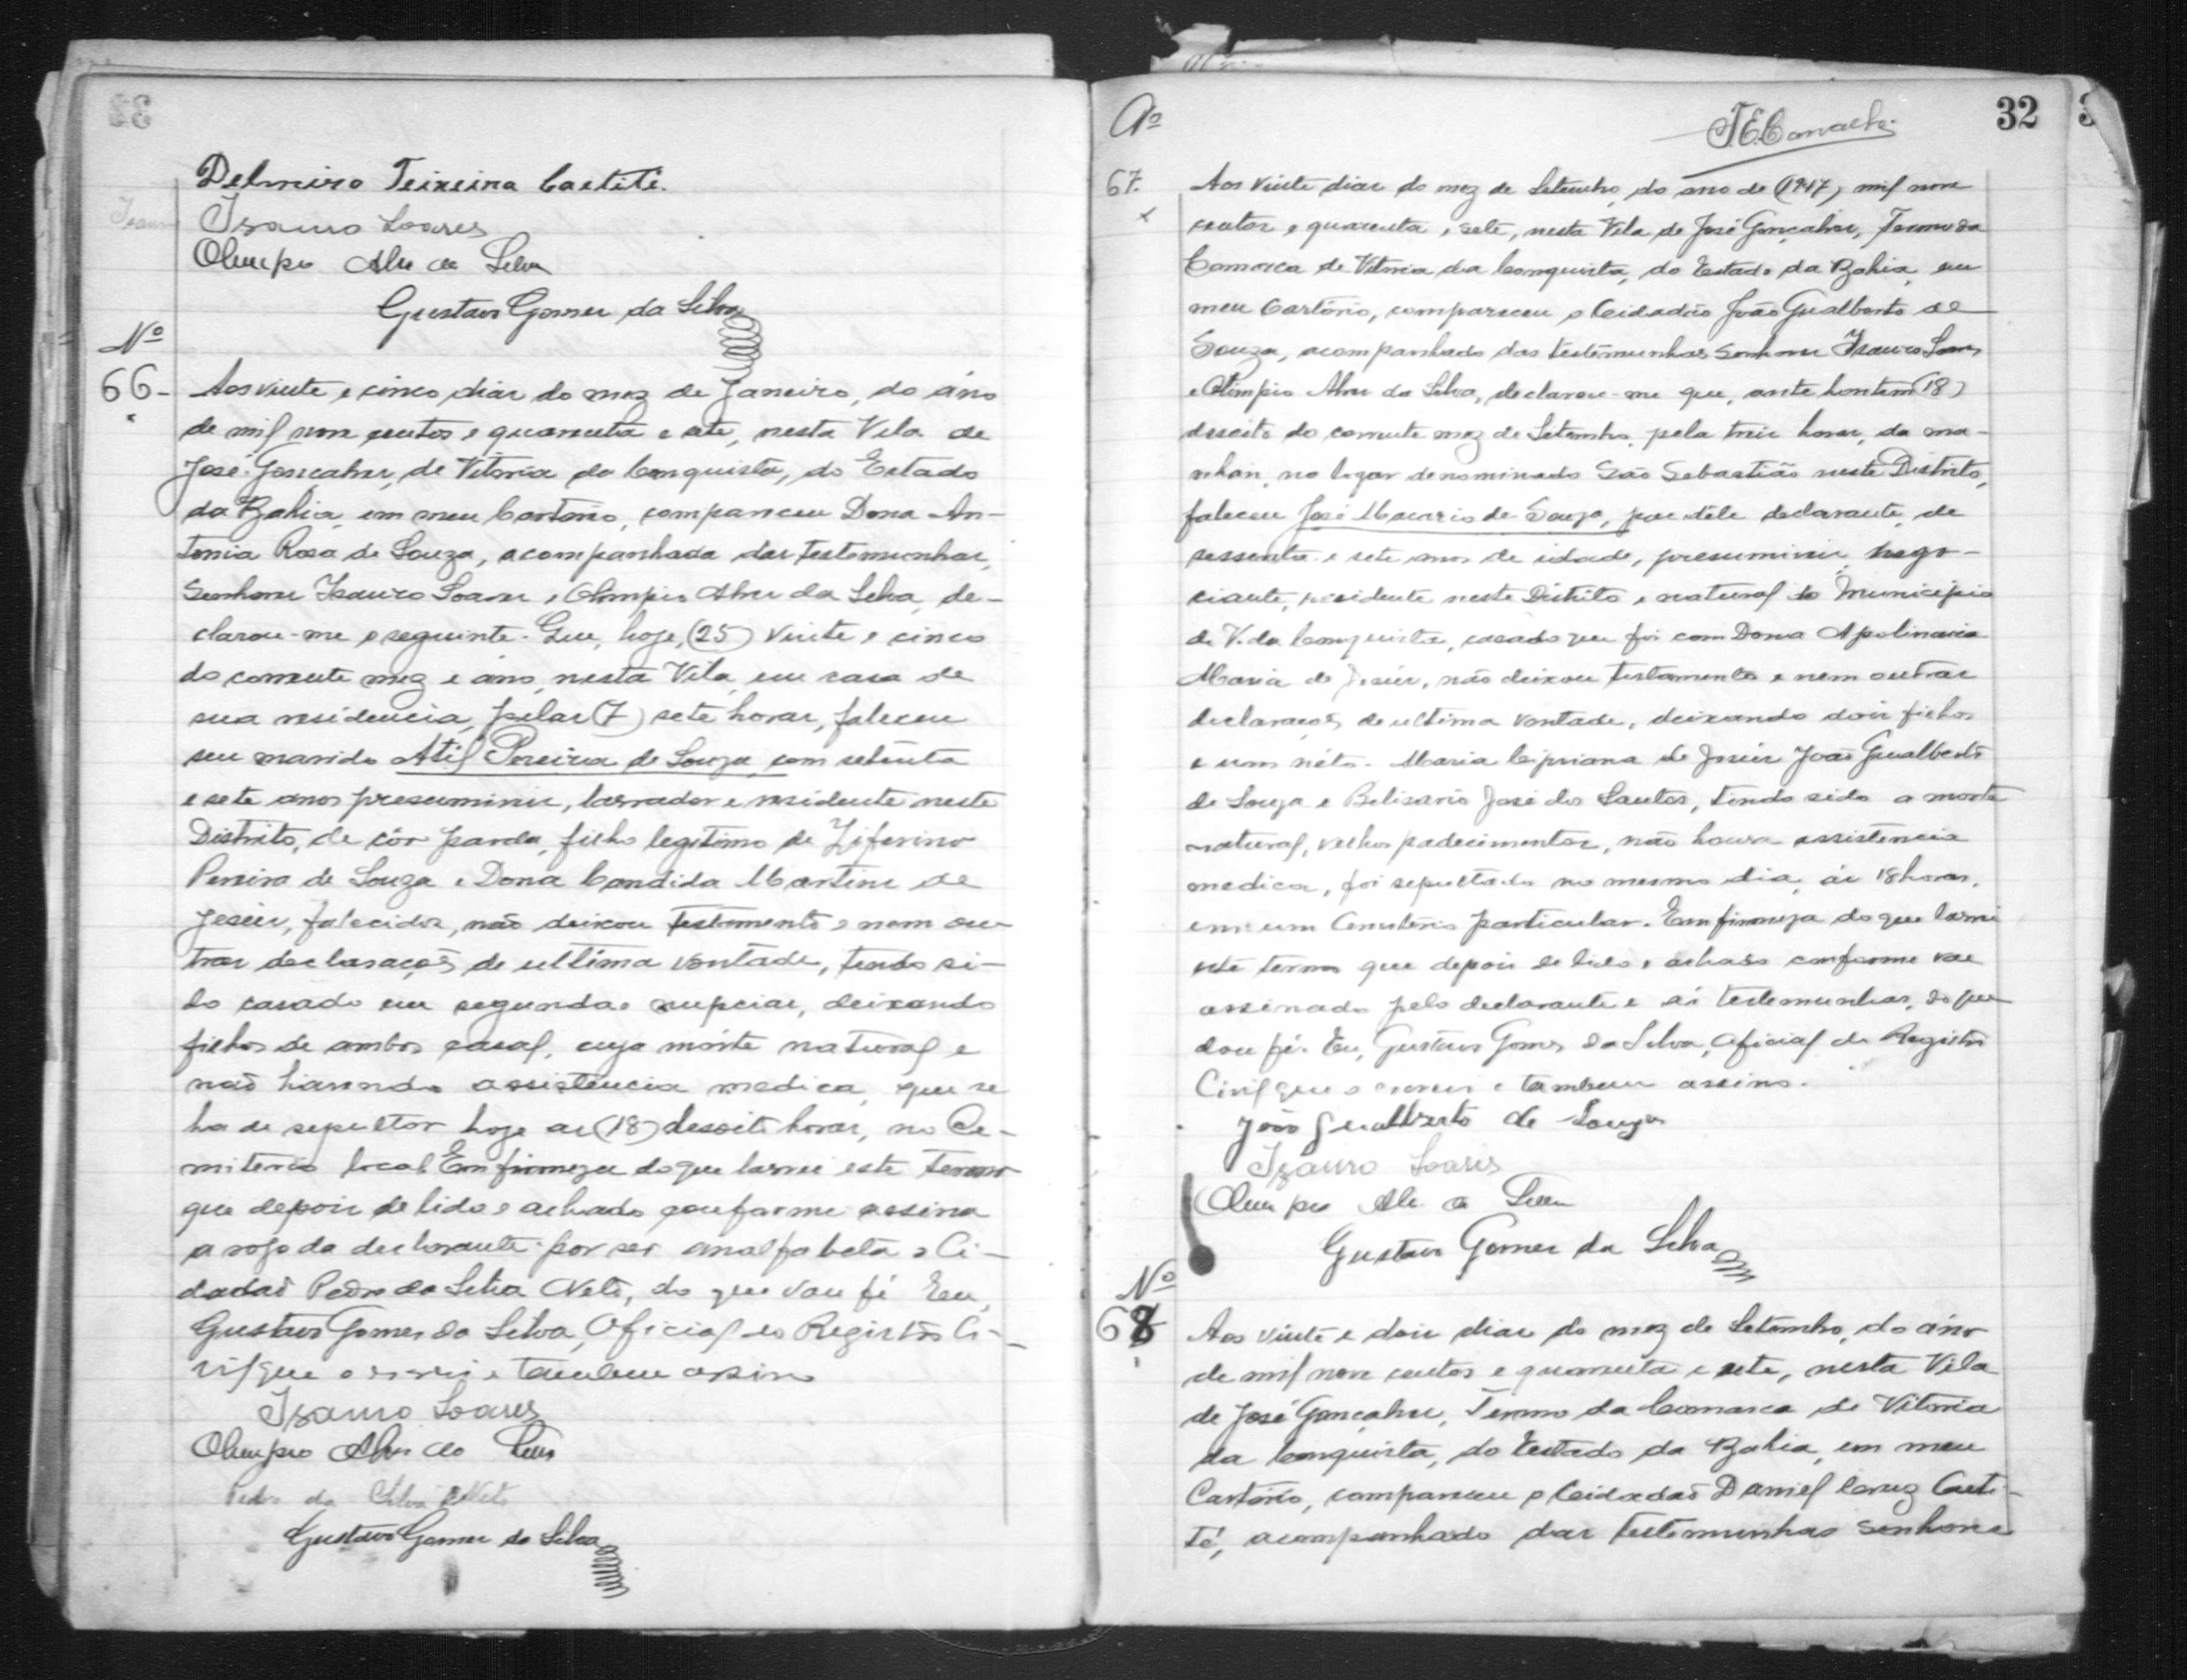 Delmiro Teixeira Caetité.
Isauro Soares
Olimpio Alves da Silva
Gustavo Gomes da Silva
Nº
66-
Aos vinte e cinco dias do mez de Janeiro, do áno
de mil nove centos e quarenta e sete, nesta Vila de
José Gonçalves, de Vitoria da Conquista, do Estado
da Bahia, em meu Cartório, compareceu Dona An-
tonia Rosa de Souza, acompanhada das testemunhas,
Senhores Isauro Soares e Olimpio Alves da Silva, de-
clarou-me o seguinte. Que, hoje, (25) vinte e cinco
do corrente mez e áno, nesta Vila, em casa de
sua residencia, pelas (7) sete horas, faleceu
seu marido Atil Pereira de Souza, com setenta
e sete anos presumiveis, lavrador e residente neste
Distrito, de côr parda, filho legitimo de Ziferino
Pereira de Souza e Dona Candida Martins de
Jesús, falecidos, não deixou testamento e nem ou-
tras declaraçoẽs de ultima vontade, tendo si-
do casado em segundas nupcias, deixando
filhos de ambos casal, cuja mórte natural e
não havendo assistencia medica, que se
ha de sepultar hoje as (18) desoito horas, no Ce-
miterio local. Em firmeza do que lavrei este termo
que depois de lido e achado conforme assina
a rogo da declarante por ser analfabeta o Ci-
dadaõ Pedro da Silva Neto, do que dou fé. Eu,
Gustavo Gomes da Silva, Oficial do Registro Ci-
vil que o escrevi e tambem assino
Isauro Soares
Olimpio Alves da Silva
Pedro da Silva Neto
Gustavo Gomes da Silva
32
Nº
67.
Aos vinte dias do mez de Setembro, do ano de (1947) mil nove
centos e quarenta e sete, nesta Vila de José Gonçalves, Termo da
Comarca de Vitoria da Conquista, do Estado da Bahia, em
meu Cartório, compareceu o Cidadão João Gualberto de
Souza, acompanhado das testemunhas Senhores Isauro Soares
e Olimpio Alves da Silva, declarou-me que, ante hontem (18)
desoito do corrente mez de Setembro, pela treis horas, da ma-
nhan, no lugar denominado São Sebastião neste Distrito,
faleceu José Macario de Souza, pae déle declarante, de
sessenta e sete anos de idade, presumiveis, nego-
ciante, residente neste Distrito e natural do Municipio
de V. da Conquista, casado que foi com Dona Apolinaria
Maria de Jesús, não deixou testamento e nem outras
declaraçoẽs de ultima vontade, deixando dois filhos
e um néto. Maria Cipriana de Jesús João Gualberto
de Souza e Belisario José dos Santos, tendo sido a morte
natural, velhos padecimentos, não houve assistencia
medica, foi sepultado no mesmo dia, ás 18 horas,
em um Cemiterio particular. Em firmeza do que lavrei
este termo que depois de lido e achado conforme vae
assinado pelo declarante e ás testemunhas, do que
dou fé. Eu, Gustavo Gomes da Silva, Oficial do Registro
Civil que o escrevi e tambem assino.
João Gualberto de Souza
Isauro Soares
Olimpio Alv. da Silva
Gustavo Gomes da Silva
Nº
68
Aos vinte e dois dias do mez de Setembro, do áno
de mil nove centos e quarenta e sete, nesta Vila
de José Gonçalves, Termo da Comarca de Vitoria
da Conquista, do Estado da Bahia, em meu
Cartório, compareceu o Cidadaõ Daniel Cruz Caeti-
té, acompanhado das testemunhas Senhores